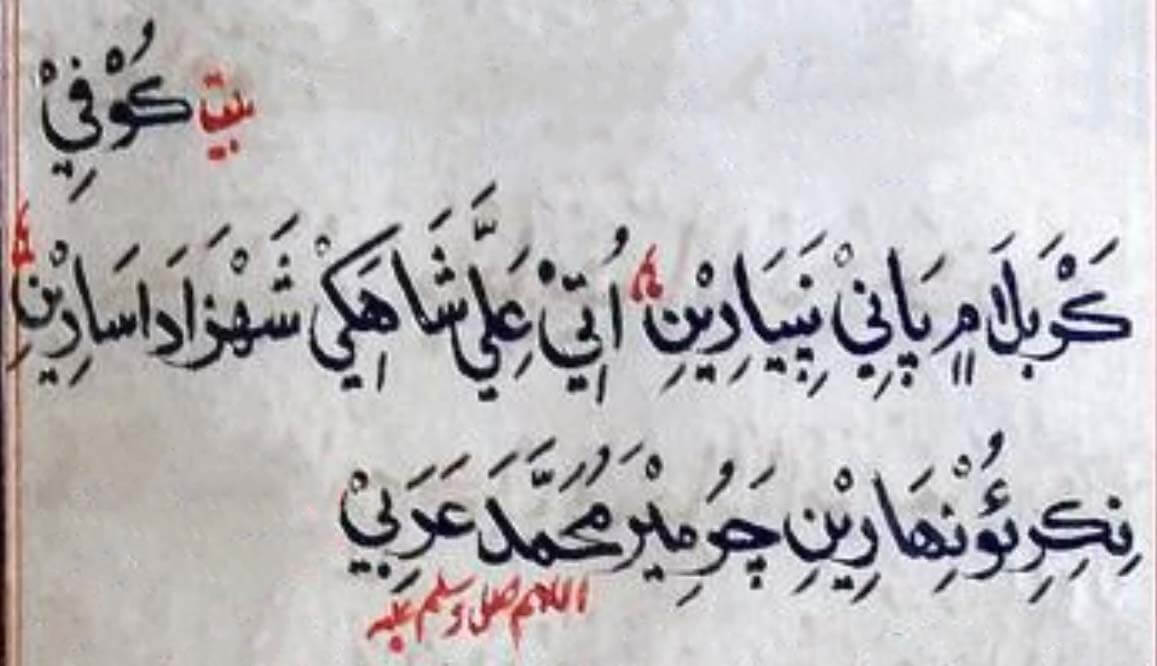 بيت كُوْفِيْ
كَرْبَلَا ۾ پَانِيْ نَپِيَارِيْنِ اُتِيْ عَلِيَّ شَاهَكِيْ شَهْزَادَا سَارِيْنِ
نِكِرِئُوْ نِهَارِيْنِ چَوُ مِيْرَ مُحَمَّدَ عَرَبِيْ
اللهم صلي وسلم عليه